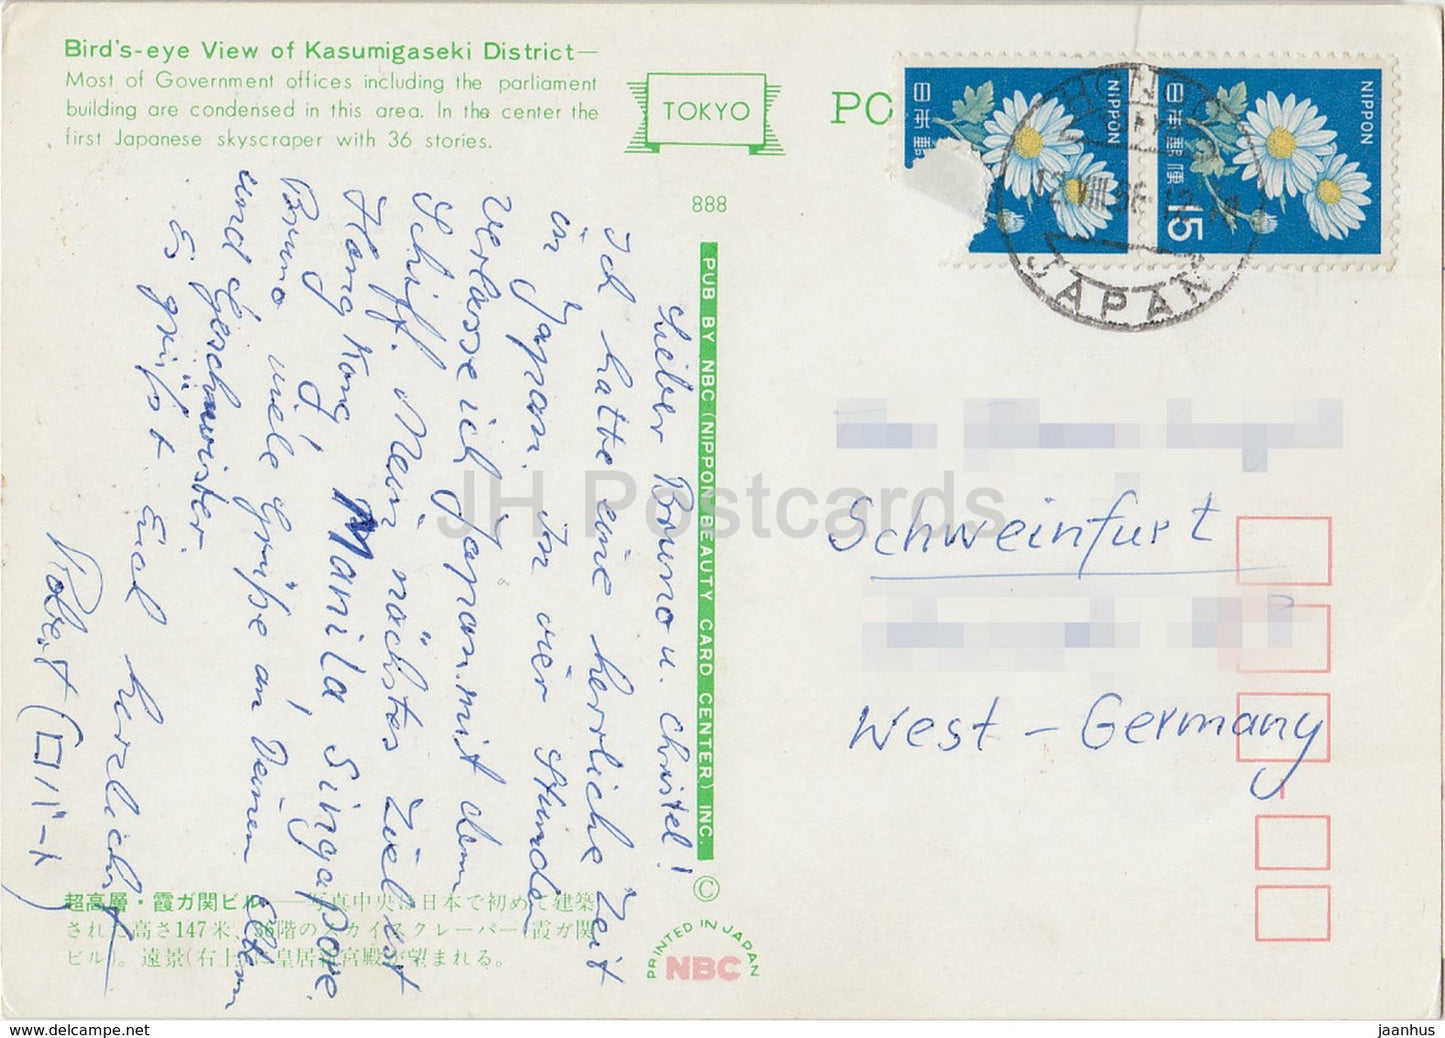 Bird's-eye View of Kasumigaseki District—
Most of Government offices including the parliament
building are condensed in this area. In the center the
first Japanese skyscraper with 36 stories.
TOKYO
PC
日本郵
NIPPON
日本郵便
15
NIPPON
HONGO
TOKYO
12.VIII.
JAPAN
888
PUB BY NBC (NIPPON BEAUTY CARD CENTER) INC.
©
PRINTED IN JAPAN
NBC
Lieber Bruno u. Christel!
Ich hatte eine herrliche Zeit
in Japan. In vier Stunden
Verlasse ich Japan mit dem
Schiff. Mein nächstes Ziel ist
Hong Kong, Manila, Singapore.
Bruno viele Grüße an Deinen Eltern
und Geschwister.
Es grüßt Euch herzlichst
Robert (ロバート)
Schweinfurt
West - Germany
超高層・霞ガ関ビル——写真中央は日本で初めて建築
された高さ147米、36階のスカイスクレーパー(霞ガ関
ビル)。遠景(右上)に皇居新宮殿が望まれる。
JH Postcards
e-monumen-delcampe.net
jaanhus